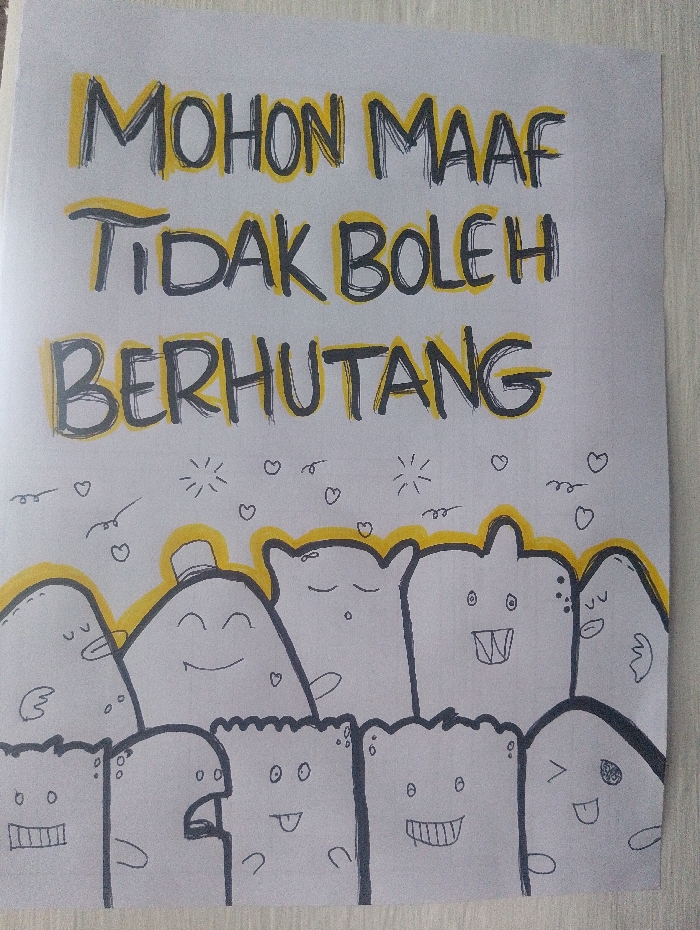 MOHON MAAF
TIDAK BOLEH
BERHUTANG